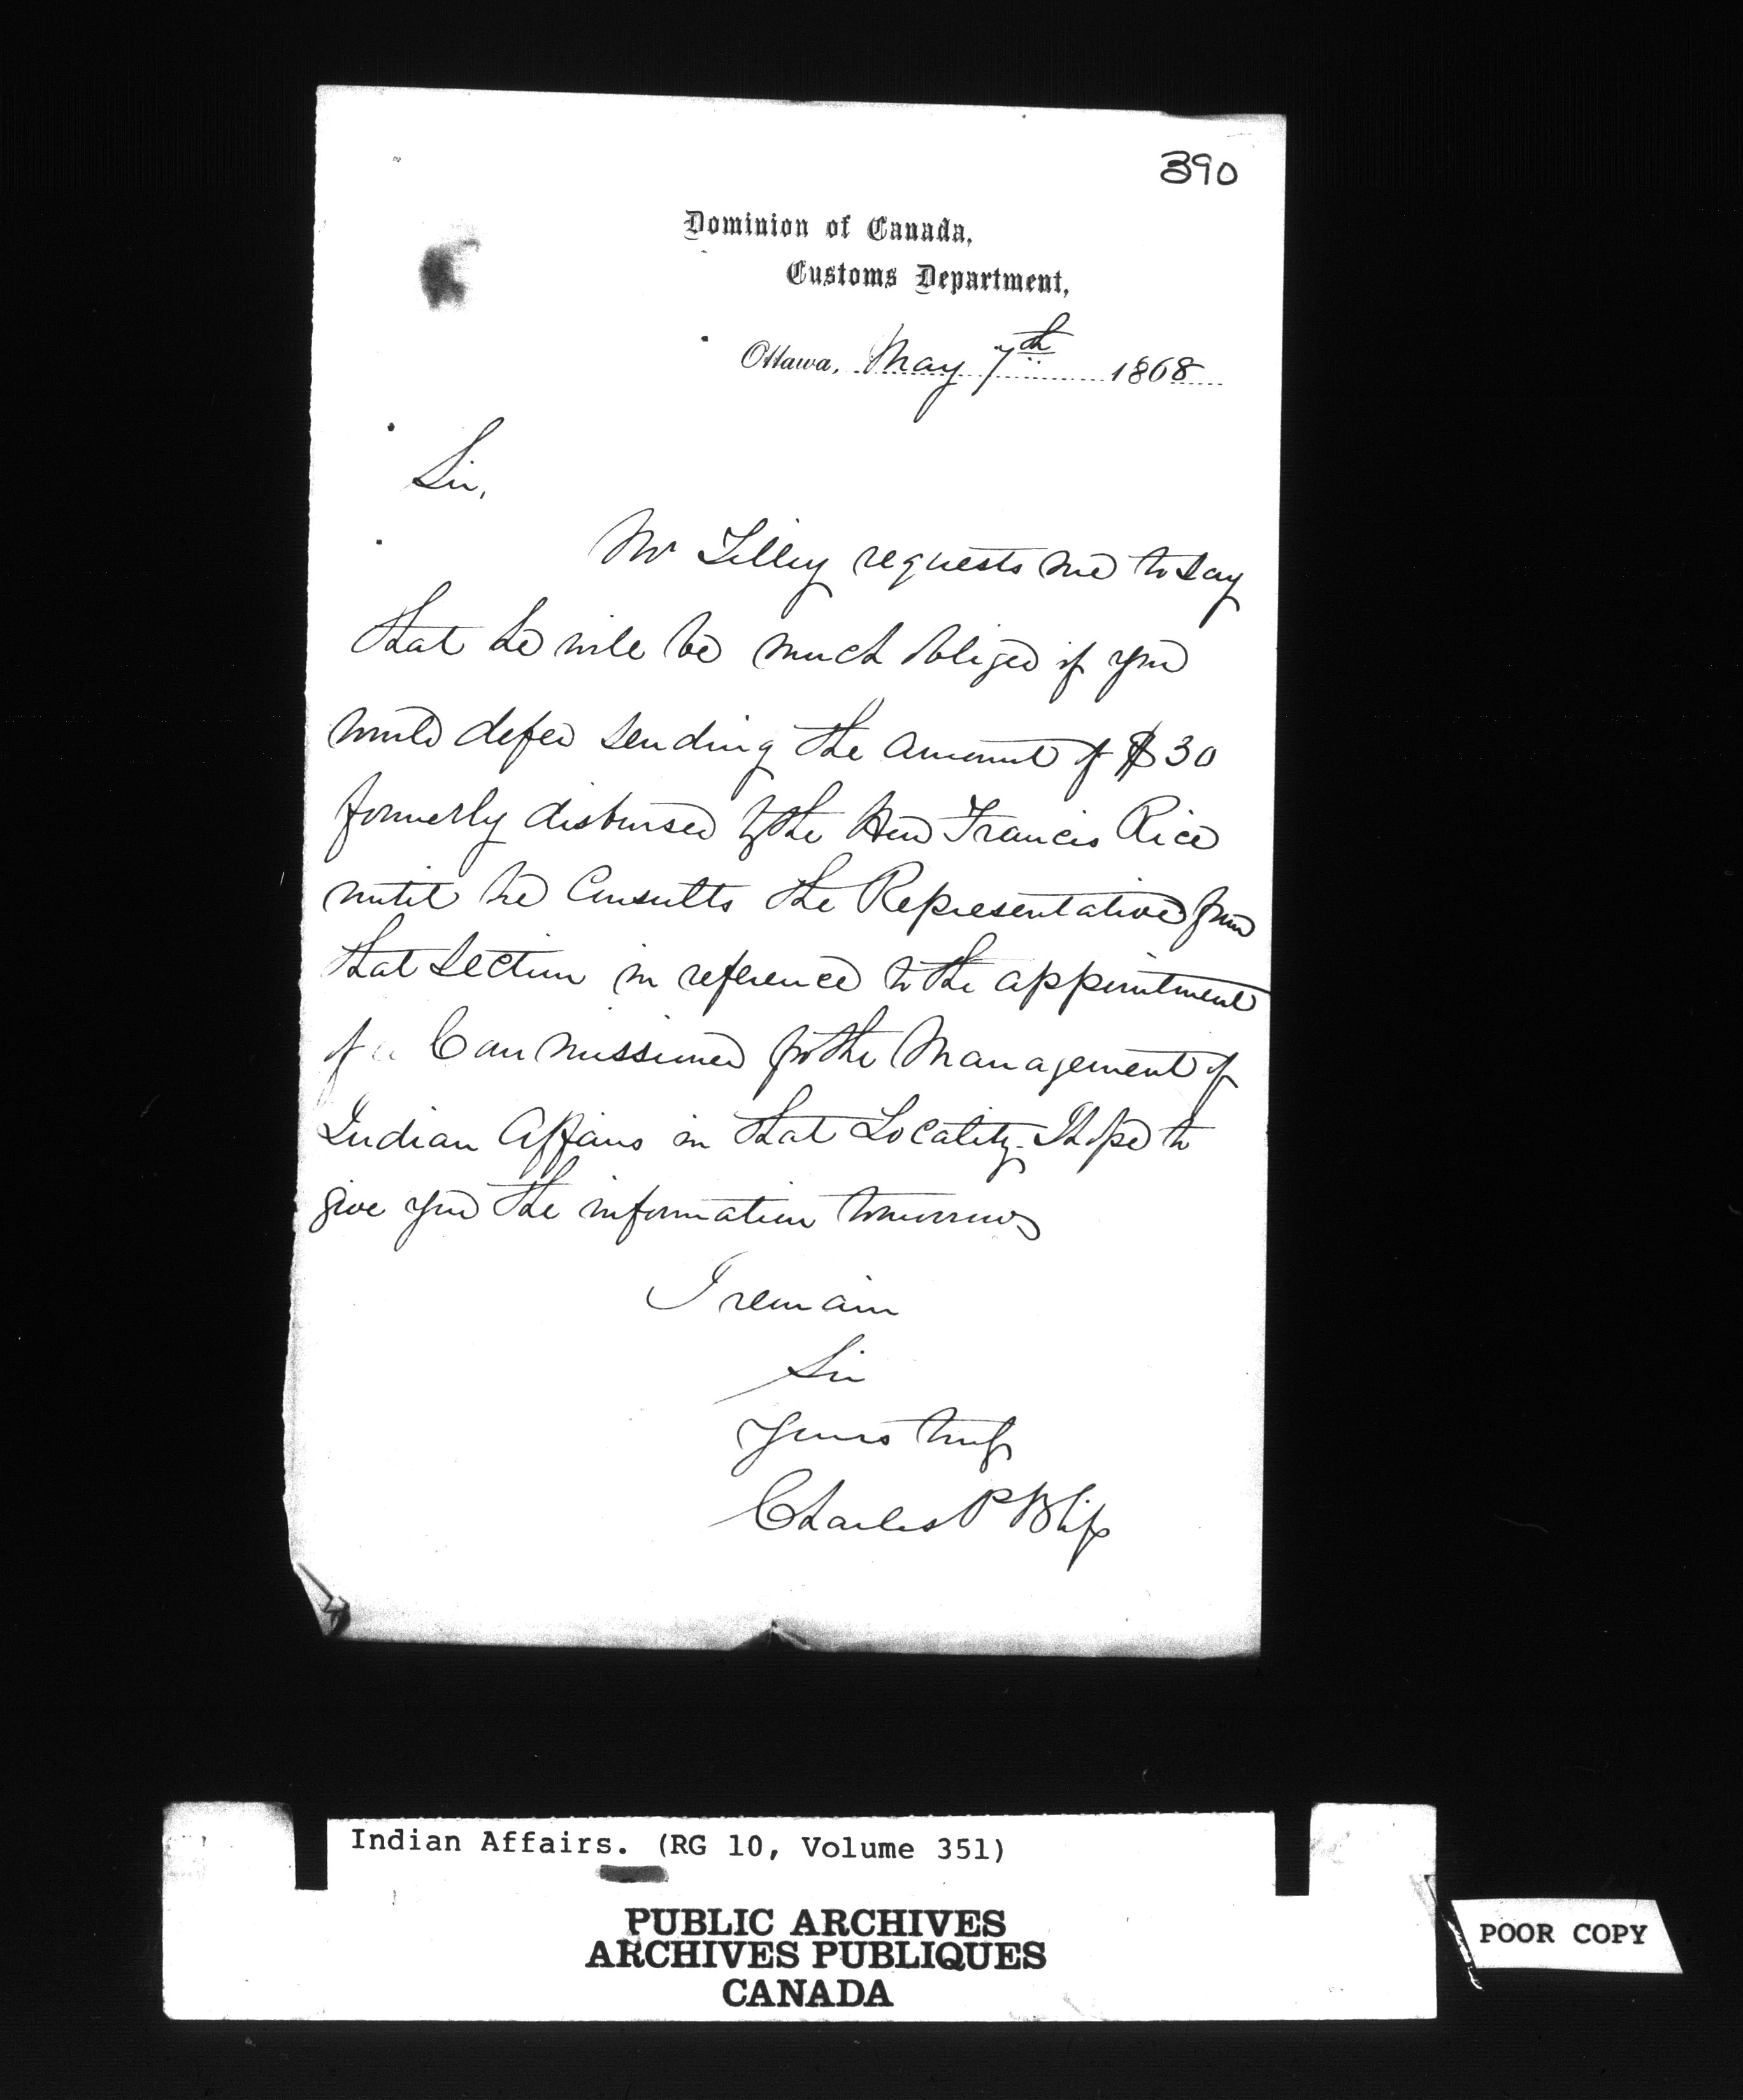 390
Dominion of Canada,
Customs Department,
Ottawa, May 7th 1868
Sir,
Mr Tilley requests me to say
that he will be much obliged if you
would defer sending the amount of $30
formerly disbursed by the Hon Francis Rice
until he Consults the Representative from
that Section in reference to the appointment
of a Commissioner for the Management of
Indian Affairs in that Locality. I hope to
give you the information tomorrow
I remain
Sir
Yours truly
Charles P
Indian Affairs. (RG 10, Volume 351)
PUBLIC ARCHIVES
ARCHIVES PUBLIQUES
CANADA
POOR COPY